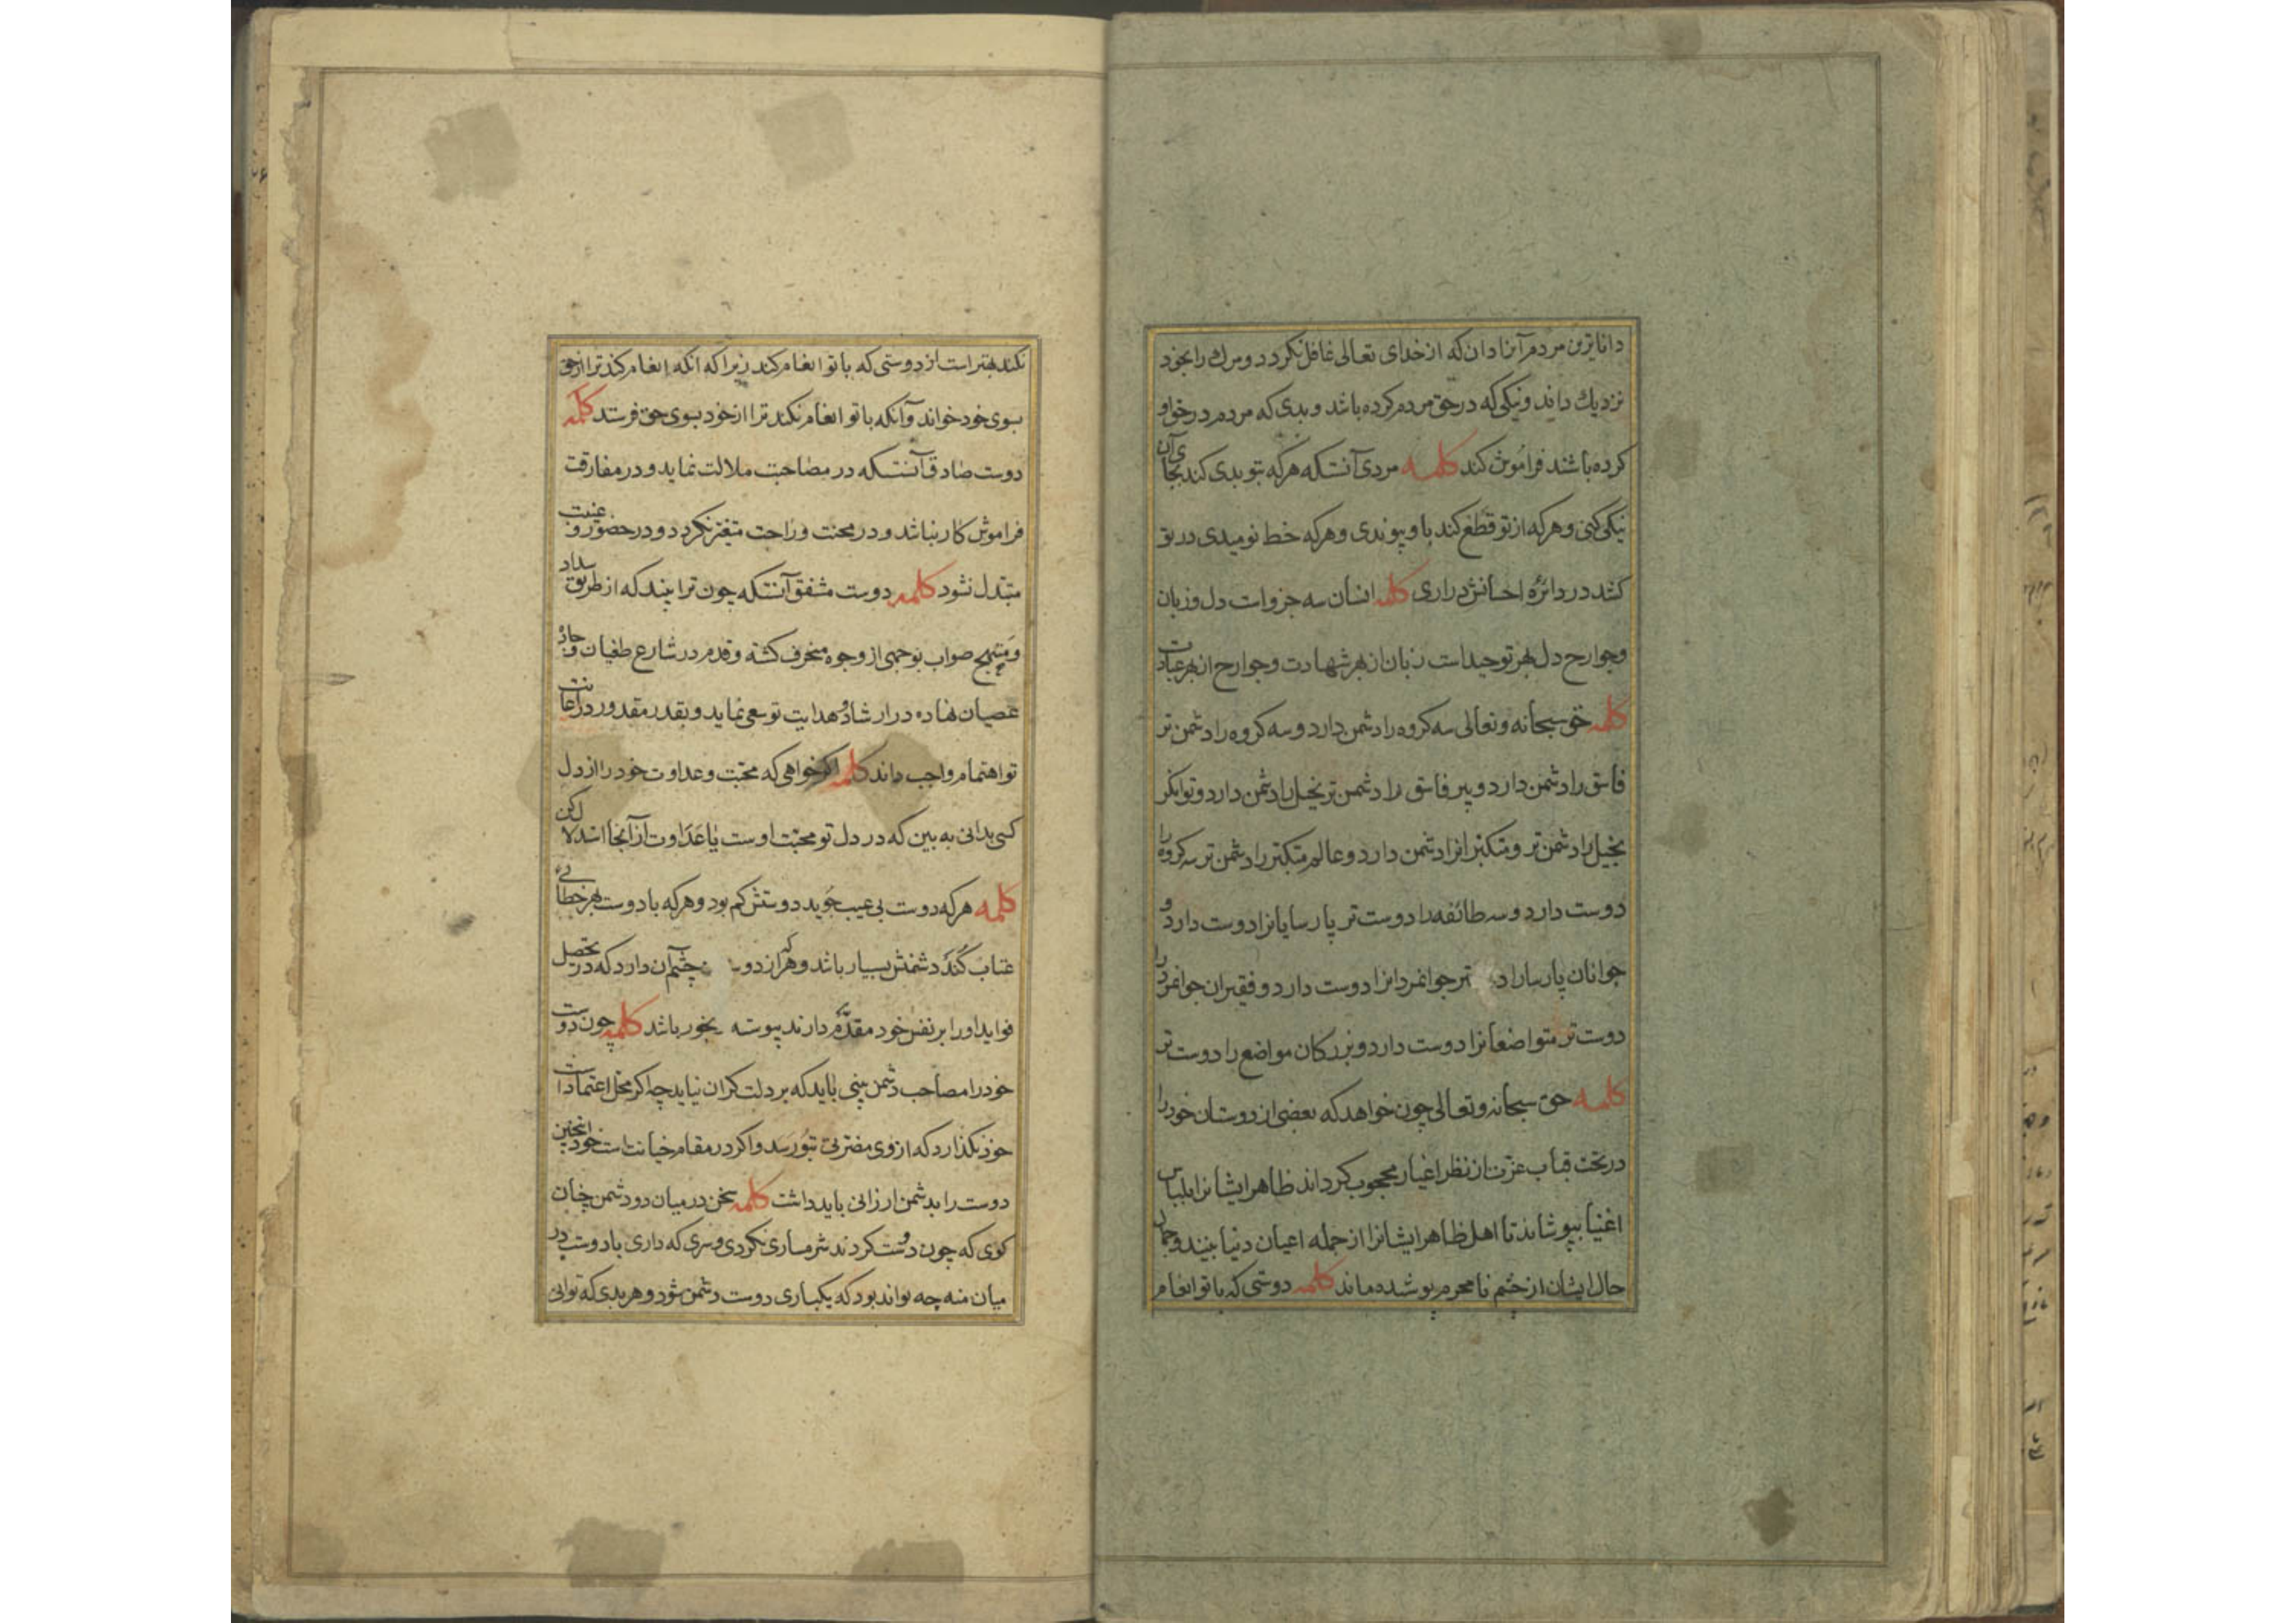 داناترین مردم آنرا دان که از خدای تعالی غافل نکردد و مرك را بخود
نزدیك داند و نیکی که در حق مردم کرده باشد و بدی که مردم در حق او
کرده باشند فراموش کند کلمه مردی آنستکه هرکه بتو بدی کند بجای آن
نیکی کنی و هرکه از تو قطع کند باو پیوندی و هرکه خط نومیدی در تو
کشد در دائرهٔ احسانش دراری کلمه انسان سه جزو است دل و زبان
و جوارح دل بهر توحید است زبان از بهر شهادت و جوارح از بهر عبادت
کلمه حق سبحانه و تعالی سه کروه را دشمن دارد و سه کروه را دشمن تر
فاسق را دشمن دارد و پیر فاسق را دشمن تر بخیل را دشمن دارد و توانکر
بخیل را دشمن تر و متکبرانرا دشمن دارد و عالم متکبر را دشمن تر سه کروه را
دوست دارد و سه طائفه را دوست تر پارسایانرا دوست دارد و
جوانان پارسا را تر جوانمردانرا دوست دارد و فقیران جوانمرد را
دوست تر متواضعانرا دوست دارد و بزرکان مواضع را دوست تر
کلمه حق سبحانه و تعالی چون خواهد که بعضی از دوستان خود را
در تحت قباب عزت از نظر اغیار محجوب کرداند ظاهر ایشانرا بلباس
اغنیا بپوشاند تا اهل ظاهر ایشانرا از جمله اعیان دنیا بینند و جمال
حال ایشان از چشم نامحرم پوشده ماند کلمه دوستی که با تو انعام
نکند بهتر است از دوستی که با تو انعام کند زیرا که انکه انعام کند ترا از حق
بسوی خود خواند و آنکه با تو انعام نکند ترا از خود بسوی حق فرستد کلمه
دوست صادق آنستکه در مصاحبت ملالت نماید و در مفارقت
فراموش کار نباشد و در محنت و راحت متغیر نکردد و در حضور و غیبت
متبدل نشود کلمه دوست مشفق آنستکه چون ترا بیند که از طریق سداد
و منهج صواب بوجهی از وجوه منحرف کشته و قدم در شارع طغیان و جادهٔ
عصیان نهاده در ارشاد و هدایت تو سعی نماید و بقدر مقدور در اعانت
تو اهتمام واجب داند کلمه اکر خواهی که محبت و عداوت خود را از دل
کسی بدانی به بین که در دل تو محبت اوست یا عداوت از آنجا استدلال کن
کلمه هرکه دوست بی عیب جوید دوستش کم بود و هرکه با دوست بهر خطائی
عتاب کند دشمنش بسیار باشد و هرکه از چشم آن دارد که در تحصیل
فواید او را بر نفس خود مقدم دارند پیوسته باشد کلمه چون دوست
خود را مصاحب دشمن بینی باید که بر دلت کران نیاید چه اکر محل اعتماد است
خود نکذارد که از وی مضرتی بتو رسد و اکر در مقام خیانت است خود اینچنین
دوست را بدشمن ارزانی باید داشت کلمه سخن در میان دو دشمن چنان
کوی که چون دوست کردند شرمساری نکردی و سری که داری با دوست در
میان منه چه تواند بود که یکباری دوست دشمن شود و هر بدی که توانی